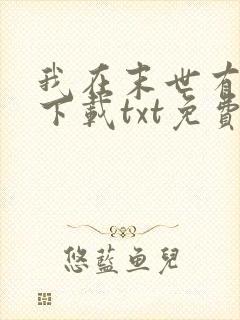 我在末世有
下載txt免費
悠藍魚兒